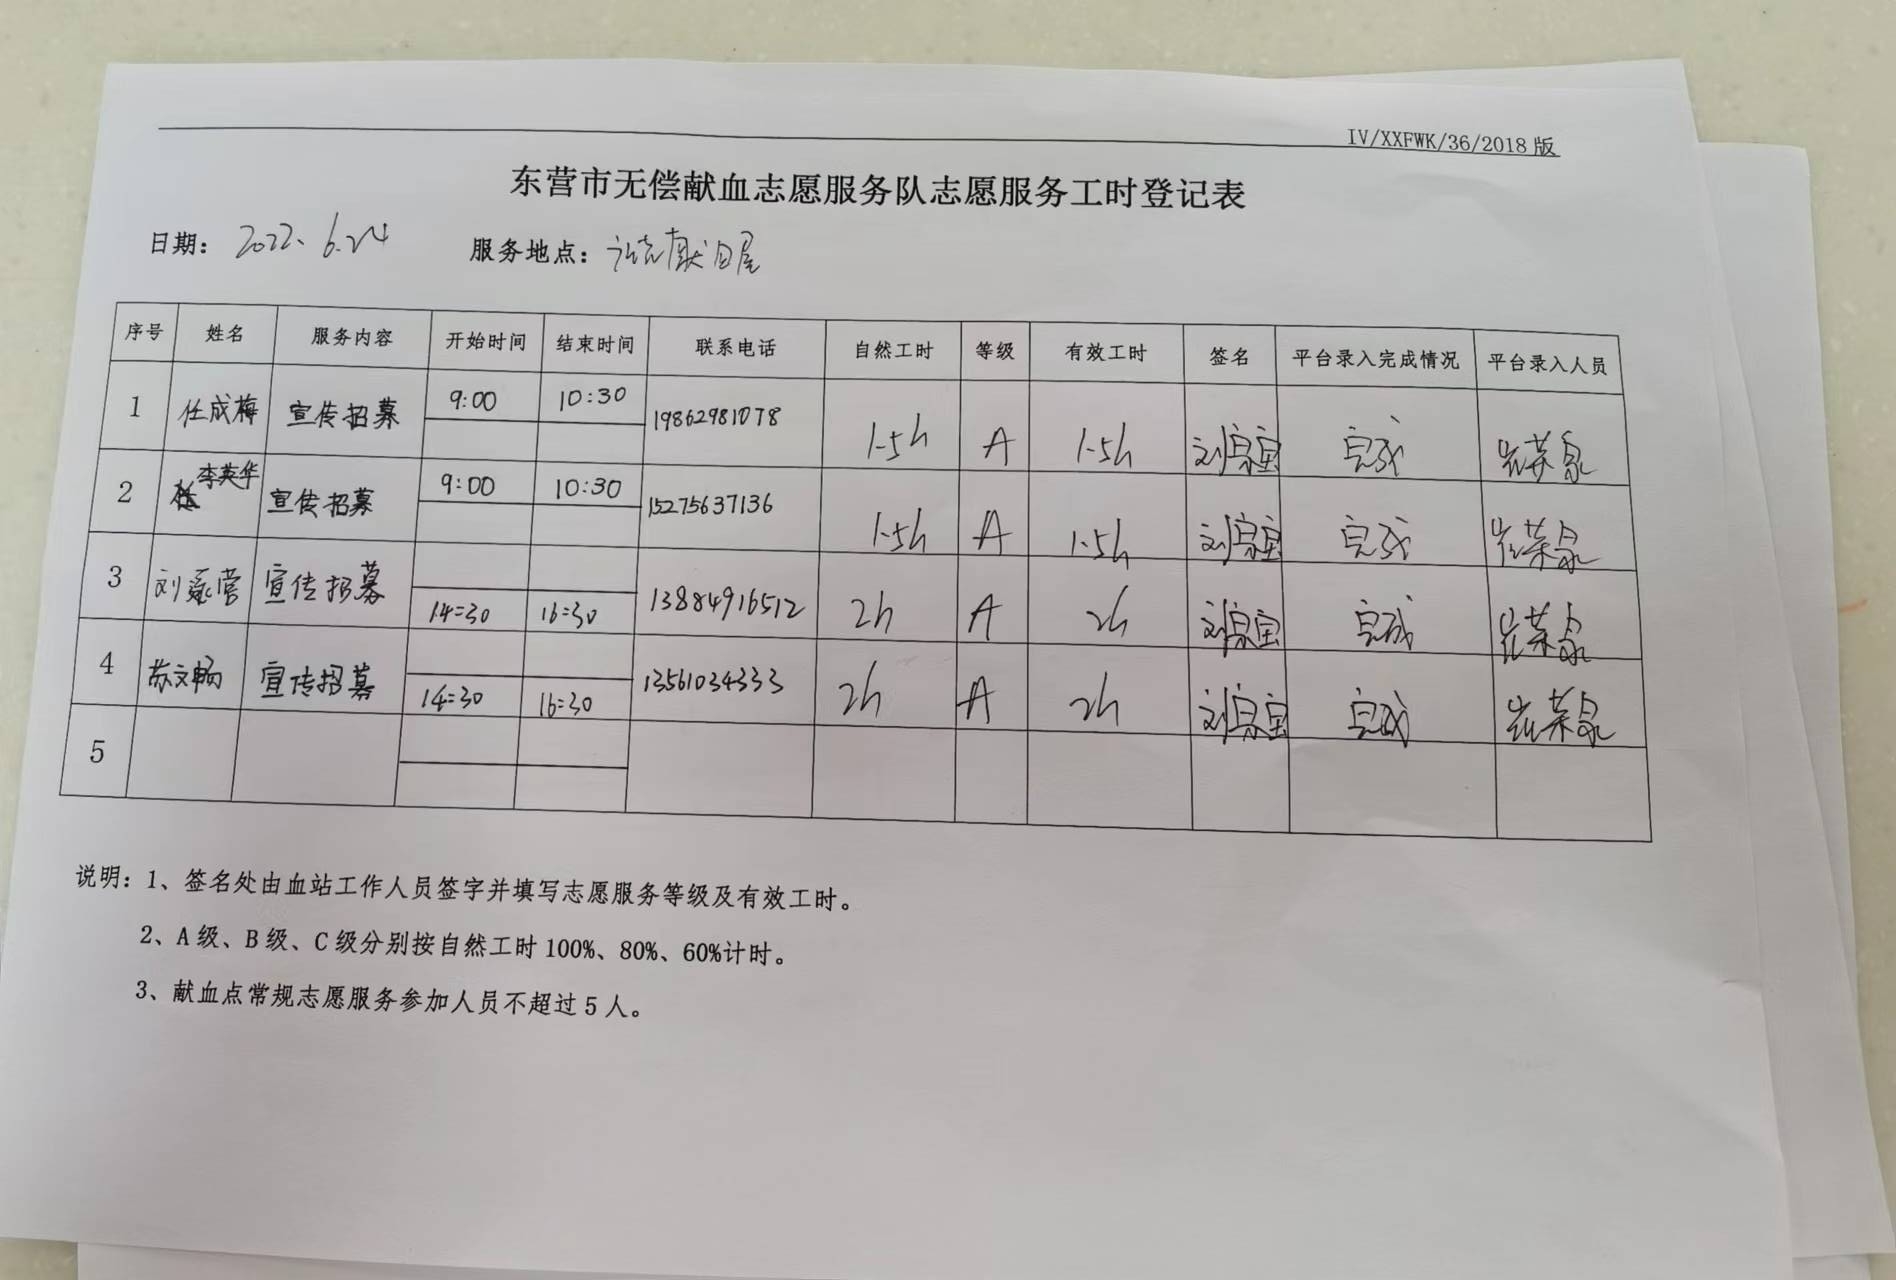 IV/XXFWK/36/2018版
东营市无偿献血志愿服务队志愿服务工时登记表
日期：2022.6.24 服务地点：献血屋
序号 姓名 服务内容 开始时间 结束时间 联系电话 自然工时 等级 有效工时 签名 平台录入完成情况 平台录入人员
1 任成梅 宣传招募 9:00 10:30 19862981078 1.5h A 1.5h 刘 完成 崔荣泉
2 李英华 宣传招募 9:00 10:30 15275637136 1.5h A 1.5h 刘 完成 崔荣泉
3 刘 营 宣传招募 14:30 16:30 13884916512 2h A 2h 刘 完成 崔荣泉
4 苏文畅 宣传招募 14:30 16:30 13561034333 2h A 2h 刘 完成 崔荣泉
5
说明：1、签名处由血站工作人员签字并填写志愿服务等级及有效工时。
2、A级、B级、C级分别按自然工时100%、80%、60%计时。
3、献血点常规志愿服务参加人员不超过5人。